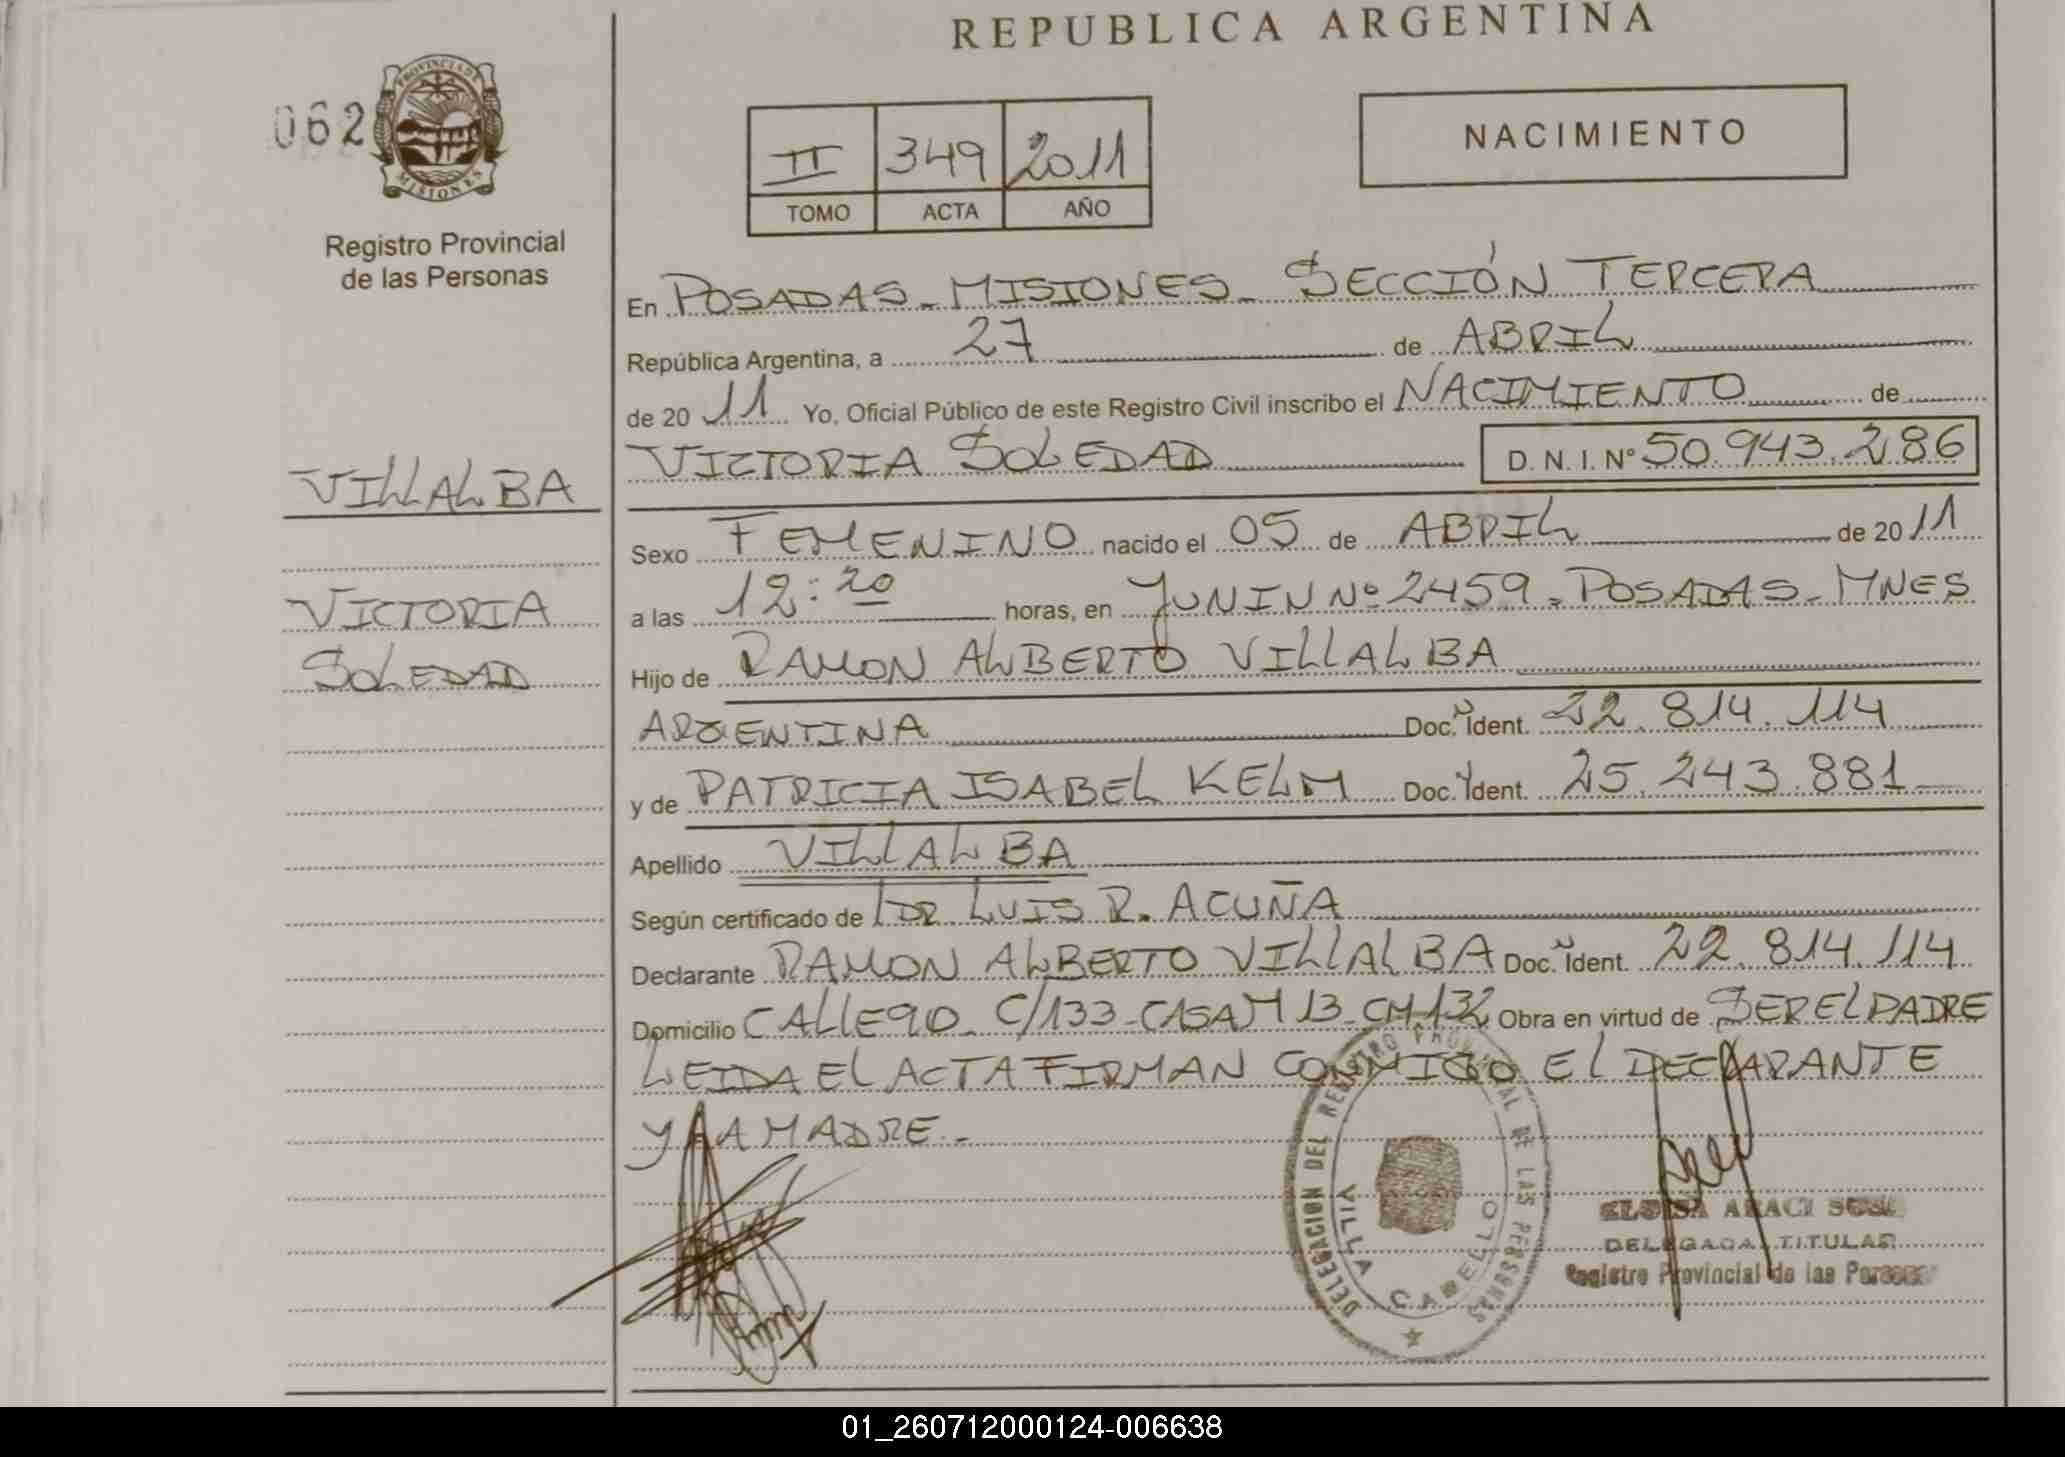 REPUBLICA ARGENTINA
062
PROVINCIA DE
MISIONES
Registro Provincial
de las Personas
II 349 2011
TOMO ACTA AÑO
NACIMIENTO
En POSADAS - MISIONES - SECCIÓN TERCERA
República Argentina, a 27 de ABRIL
de 2011 Yo, Oficial Público de este Registro Civil inscribo el NACIMIENTO de
VICTORIA SOLEDAD D.N.I. Nº 50.943.286
VILLALBA
VICTORIA
SOLEDAD
Sexo FEMENINO nacido el 05 de ABRIL de 2011
a las 12:20 horas, en JUNIN Nº 2459 - POSADAS - MNES
Hijo de RAMON ALBERTO VILLALBA
ARGENTINA Doc. Ident. 22.814.114
y de PATRICIA ISABEL KELM Doc. Ident. 25.243.881
Apellido VILLALBA
Según certificado de DR. LUIS R. ACUÑA
Declarante RAMON ALBERTO VILLALBA Doc. Ident. 22.814.114
Domicilio CALLE 90 - C/133 - CASA M 13 - CH 132 Obra en virtud de SER EL PADRE
LEIDA EL ACTA FIRMAN CONMIGO EL DECLARANTE
Y LA MADRE.-
DELEGACION DEL REGISTRO PROVINCIAL DE LAS PERSONAS
VILLA CABELLO
ARACI
DELEGADA TITULAR
Registro Provincial de las Personas
01_260712000124-006638